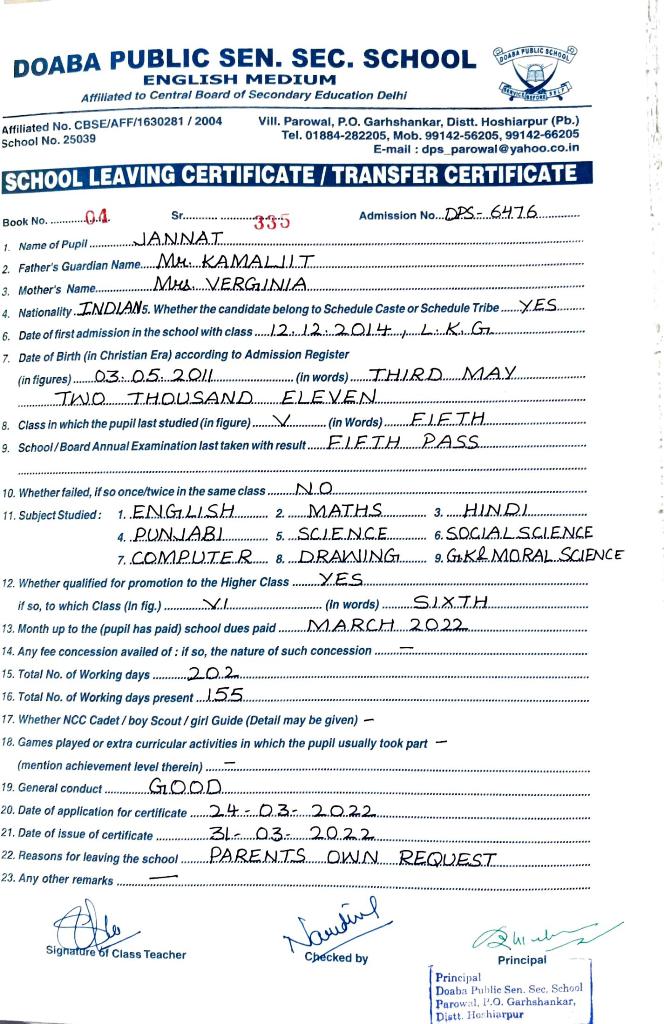 DOABA PUBLIC SEN. SEC. SCHOOL
ENGLISH MEDIUM
Affiliated to Central Board of Secondary Education Delhi
DOABA PUBLIC SCHOOL
SERVICE BEFORE SELF
Affiliated No. CBSE/AFF/1630281 / 2004
School No. 25039
Vill. Parowal, P.O. Garhshankar, Distt. Hoshiarpur (Pb.)
Tel. 01884-282205, Mob. 99142-56205, 99142-66205
E-mail : dps_parowal@yahoo.co.in
SCHOOL LEAVING CERTIFICATE / TRANSFER CERTIFICATE
Book No. 04 Sr. 335 Admission No. DPS-6476
1. Name of Pupil JANNAT
2. Father's Guardian Name Mr. KAMALJIT
3. Mother's Name Mrs. VERGINIA
4. Nationality INDIAN 5. Whether the candidate belong to Schedule Caste or Schedule Tribe YES
6. Date of first admission in the school with class 12.12.2014, L.K.G
7. Date of Birth (in Christian Era) according to Admission Register
(in figures) 03.05.2011 (in words) THIRD MAY
TWO THOUSAND ELEVEN
8. Class in which the pupil last studied (in figure) V (in Words) FIFTH
9. School / Board Annual Examination last taken with result FIFTH PASS
10. Whether failed, if so once/twice in the same class NO
11. Subject Studied : 1. ENGLISH 2. MATHS 3. HINDI
4. PUNJABI 5. SCIENCE 6. SOCIAL SCIENCE
7. COMPUTER 8. DRAWING 9. G.K & MORAL SCIENCE
12. Whether qualified for promotion to the Higher Class YES
if so, to which Class (In fig.) VI (In words) SIXTH
13. Month up to the (pupil has paid) school dues paid MARCH 2022
14. Any fee concession availed of : if so, the nature of such concession —
15. Total No. of Working days 202
16. Total No. of Working days present 155
17. Whether NCC Cadet / boy Scout / girl Guide (Detail may be given) —
18. Games played or extra curricular activities in which the pupil usually took part —
(mention achievement level therein) —
19. General conduct GOOD
20. Date of application for certificate 24-03-2022
21. Date of issue of certificate 31-03-2022
22. Reasons for leaving the school PARENTS OWN REQUEST
23. Any other remarks —
Signature of Class Teacher
Checked by
Principal
Principal
Doaba Public Sen. Sec. School
Parowal, P.O. Garhshankar,
Distt. Hoshiarpur